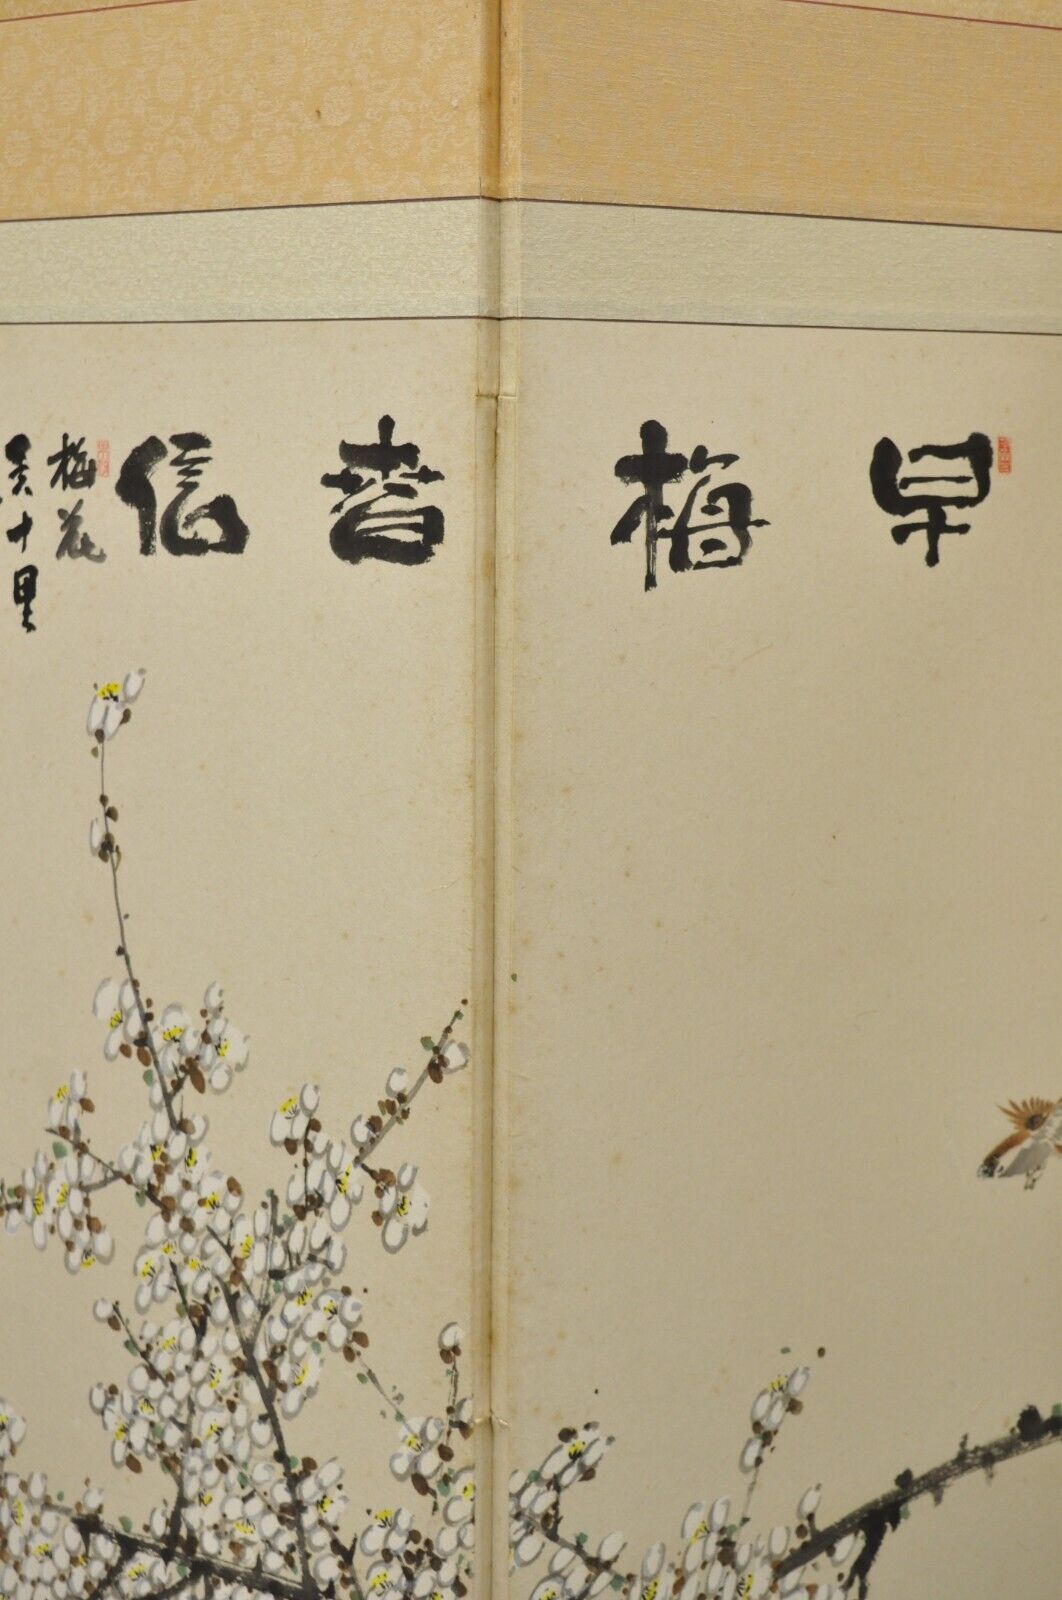 早梅春信
梅花
十里